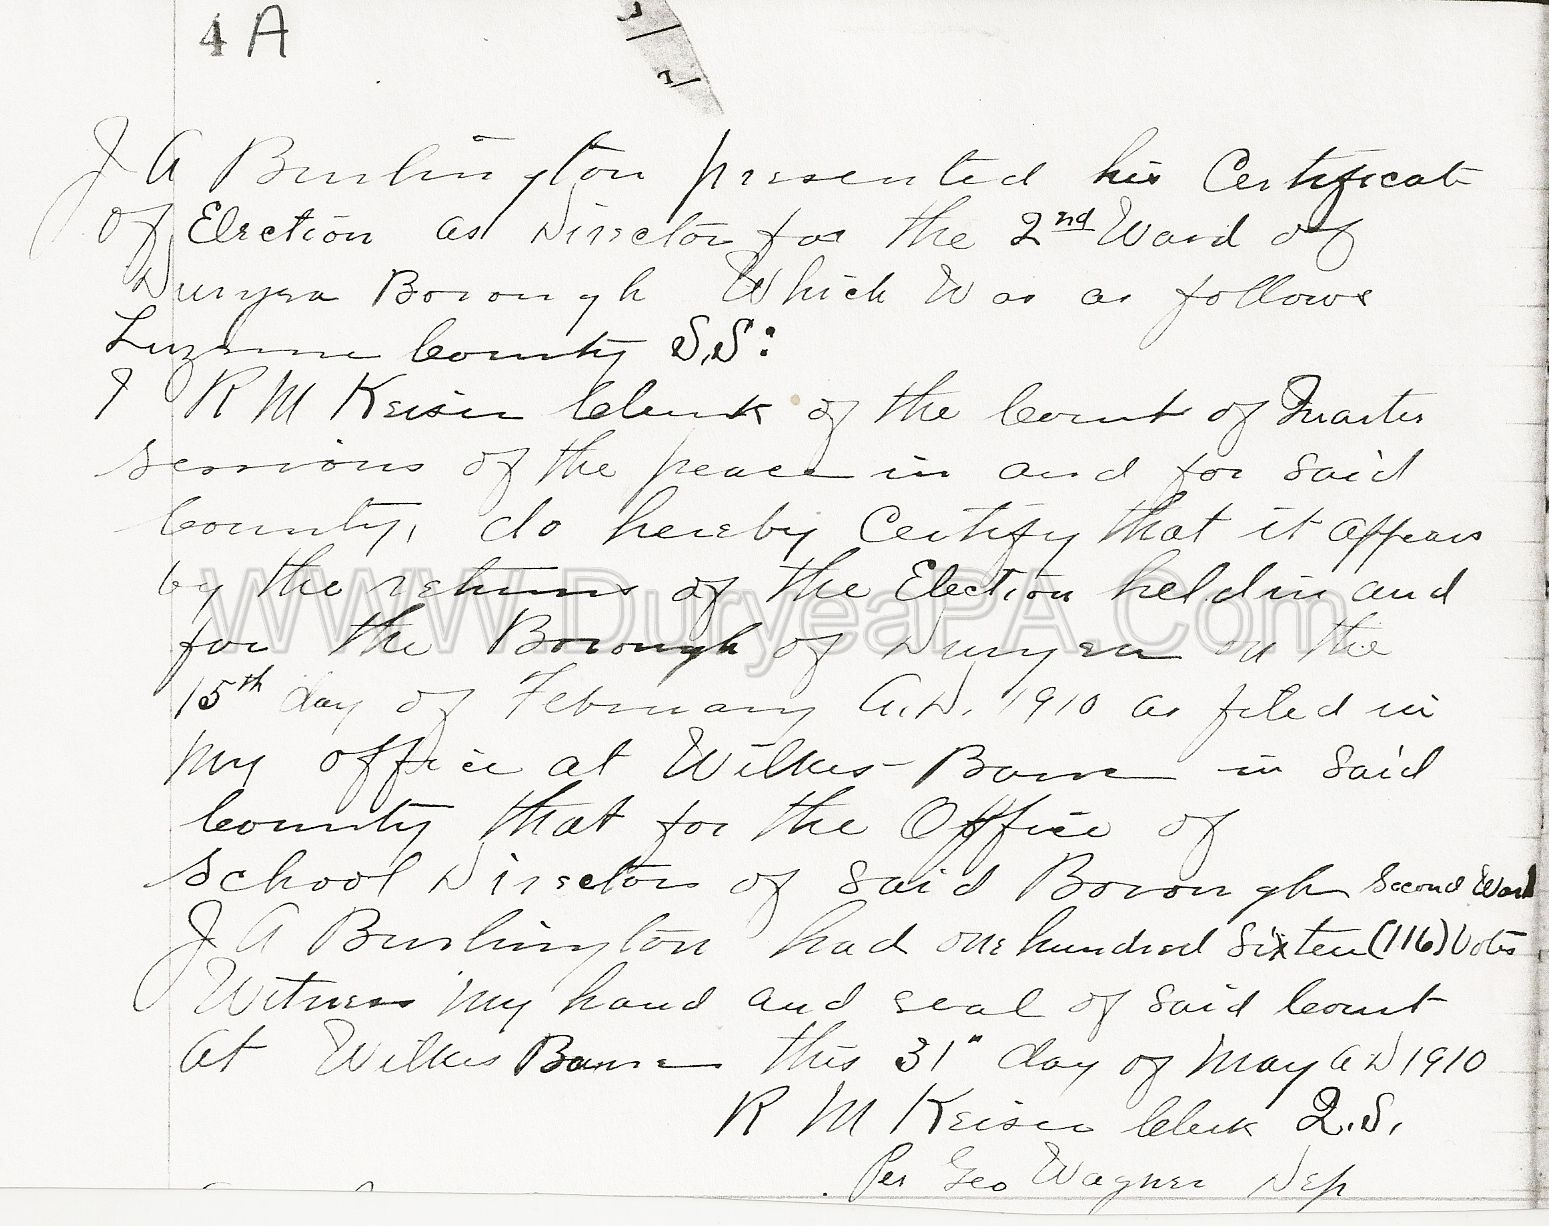 4 A
J A Burlington presented his Certificate
of Election as Director for the 2nd Ward of
Duryea Borough Which Was as follows
Luzerne County S.S:
I R M Keiser Clerk of the Court of Quarter
sessions of the peace in and for said
County, do hereby Certify that it appears
by the returns of the Election held in and
for the Borough of Duryea on the
15th day of February A.D. 1910 as filed in
my office at Wilkes-Barre in said
County that for the Office of
School Director of said Borough Second Ward
J A Burlington had one hundred sixteen (116) Votes
Witness my hand and seal of said Court
at Wilkes Barre this 31" day of May A D 1910
R M Keiser Clerk Q.S.
Per Geo Wagner Dep
WWW.DuryeaPA.Com